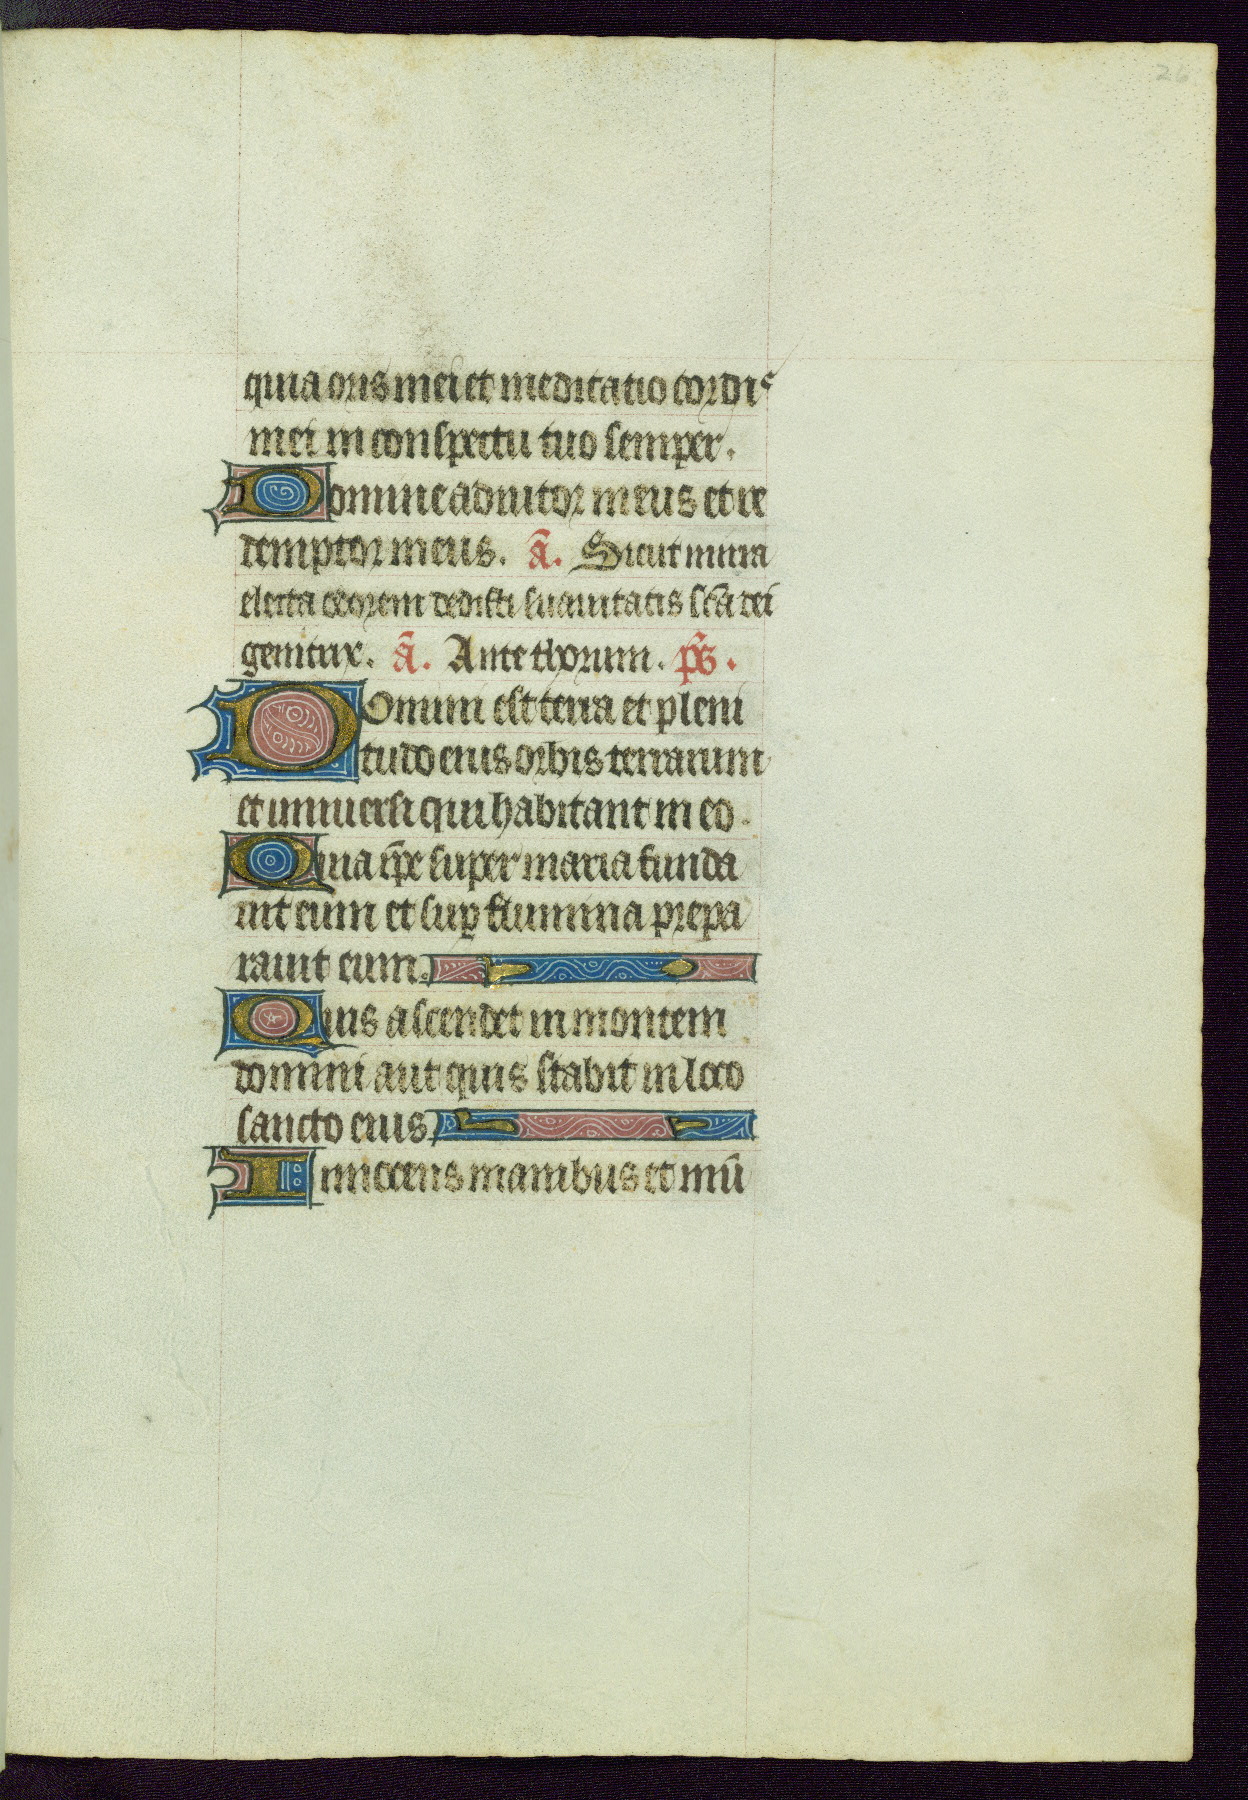 26
quia oris mei et meditatio cordis
mei in conspectu tuo semper.
Domine adiutor meus et re
demptor meus. ā. Sicut mirra
electa odorem dedisti suauitatis scā dei
genitrix. ā. Ante thorum. ps̄.
Domini est terra et pleni
tudo eius orbis terrarum
et uniuersi qui habitant in eo.
Quia ip̄e super maria funda
uit eum et sup̱ flumina prepa
rauit eum.
Quis ascendet in montem
domini aut quis stabit in loco
sancto eius
Innocens manibus et mū